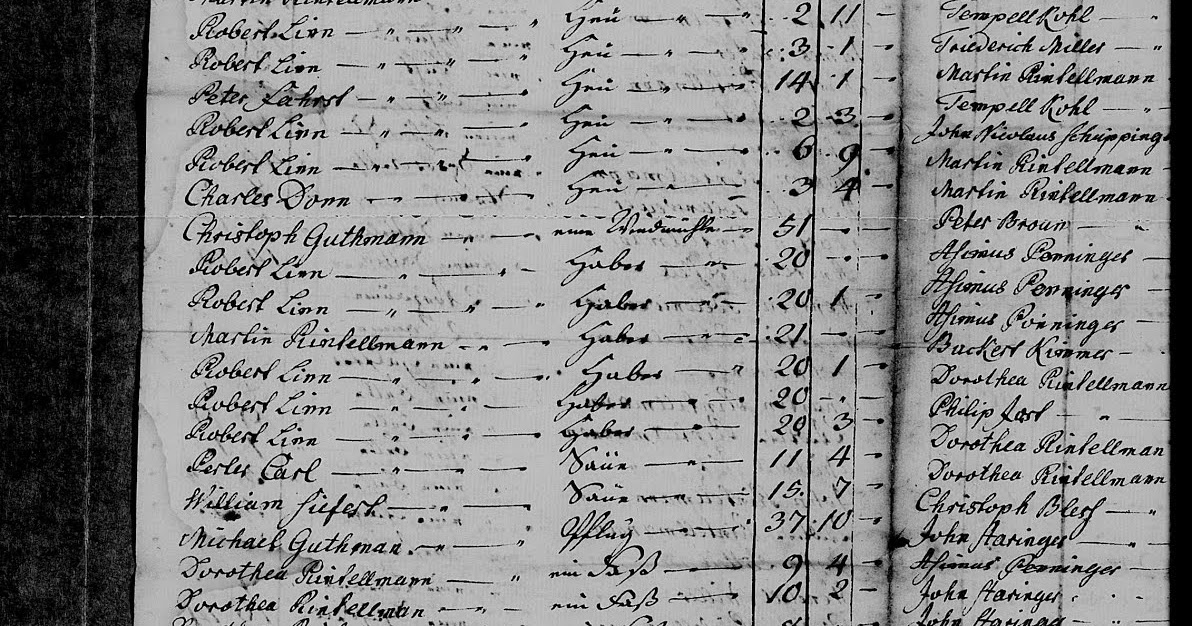 Robert Linn — " — " — " Heu — " — " 2 11 —
Robert Linn — " — " — " Heu — " — " 3 1 —
Peter Fahrst — " — " — Heu — " — 14 1 —
Robert Linn — " — " — Heu — " — 2 3 —
Robert Linn — " — " — Heu — " — 6 9 —
Charles Donn — " — " — Heu — " — 3 4 —
Christoph Guthmann — " — eine Windmühle — 51 — —
Robert Linn — " — " — Haber — " — 20 — —
Robert Linn — " — " — " Haber — " — 20 1 —
Martin Rintellmann — " — Haber — " — 21 — —
Robert Linn — " — " — " Haber — " 20 1 —
Robert Linn — " — " — Haber — " — 20 — —
Robert Linn — " — " — Haber — " — 20 3 —
Carl — " — " — Saüe — " — 11 4 —
William — " — Saüe — " — 15 7 —
Michael Guthman — " — Pflug — " — 37 10 —
Dorothea Rintellmann — " ein Faß — 9 4 —
Dorothea Rintellman — " — ein Faß — " — 10 2 —
Tempell Kohl — "
Friederich Miller — "
Martin Rintellmann —
Tempell Kohl — "
John Nicolaus Schupping
Martin Rintellmann —
Martin Rintellmann —
Peter Broun — "
Asimus Penninger —
Asimus Penninger —
Asimus Penninger —
Buckert Kimmer —
Dorothea Rintellmann
Philip Jost — "
Dorothea Rintellman
Dorothea Rintellmann
Christoph Blesf — "
John Haringer — "
Asimus Penninger —
John Haringer
John Haringer